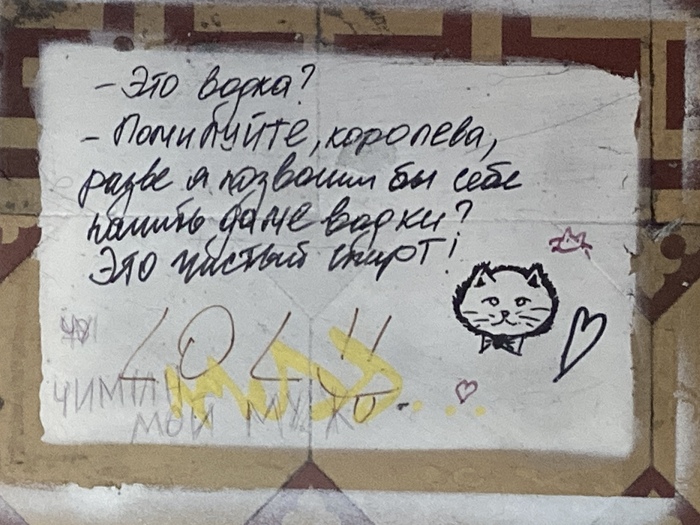 - Это водка?
- Помилуйте, королева,
разве я позволил бы себе
налить даме водки?
Это чистый спирт!
ЧИМИН
МОЙ МУЖ